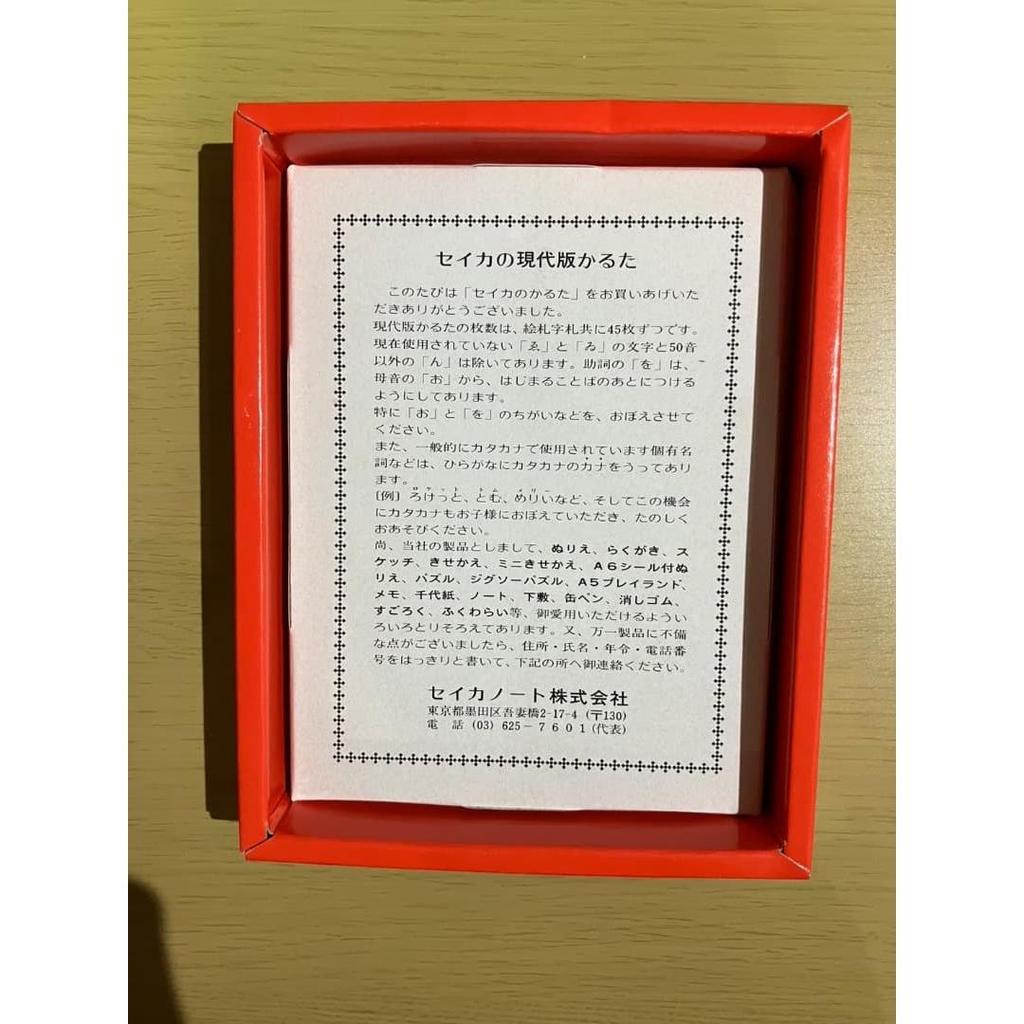 セイカの現代版かるた
このたびは「セイカのかるた」をお買いあげいた
だきありがとうございました。
現代版かるたの枚数は、絵札字札共に45枚ずつです。
現在使用されていない「ゑ」と「ゐ」の文字と50音
以外の「ん」は除いてあります。助詞の「を」は、
母音の「お」から、はじまることばのあとにつける
ようにしてあります。
特に「お」と「を」のちがいなどを、おぼえさせて
ください。
また、一般的にカタカナで使用されています個有名
詞などは、ひらがなにカタカナのカナをうってあり
ます。
ロケット トム メリー
〔例〕ろけっと、とむ、めりいなど、そしてこの機会
にカタカナもお子様におぼえていただき、たのしく
おあそびください。
尚、当社の製品としまして、ぬりえ、らくがき、ス
ケッチ、きせかえ、ミニきせかえ、A6シール付ぬ
りえ、パズル、ジグソーパズル、A5プレイランド、
メモ、千代紙、ノート、下敷、缶ペン、消しゴム、
すごろく、ふくわらい等、御愛用いただけるようい
ろいろとりそろえてあります。又、万一製品に不備
な点がございましたら、住所・氏名・年令・電話番
号をはっきりと書いて、下記の所へ御連絡ください。
セイカノート株式会社
東京都墨田区吾妻橋2-17-4 (〒130)
電 話 (03) 625-7601(代表)